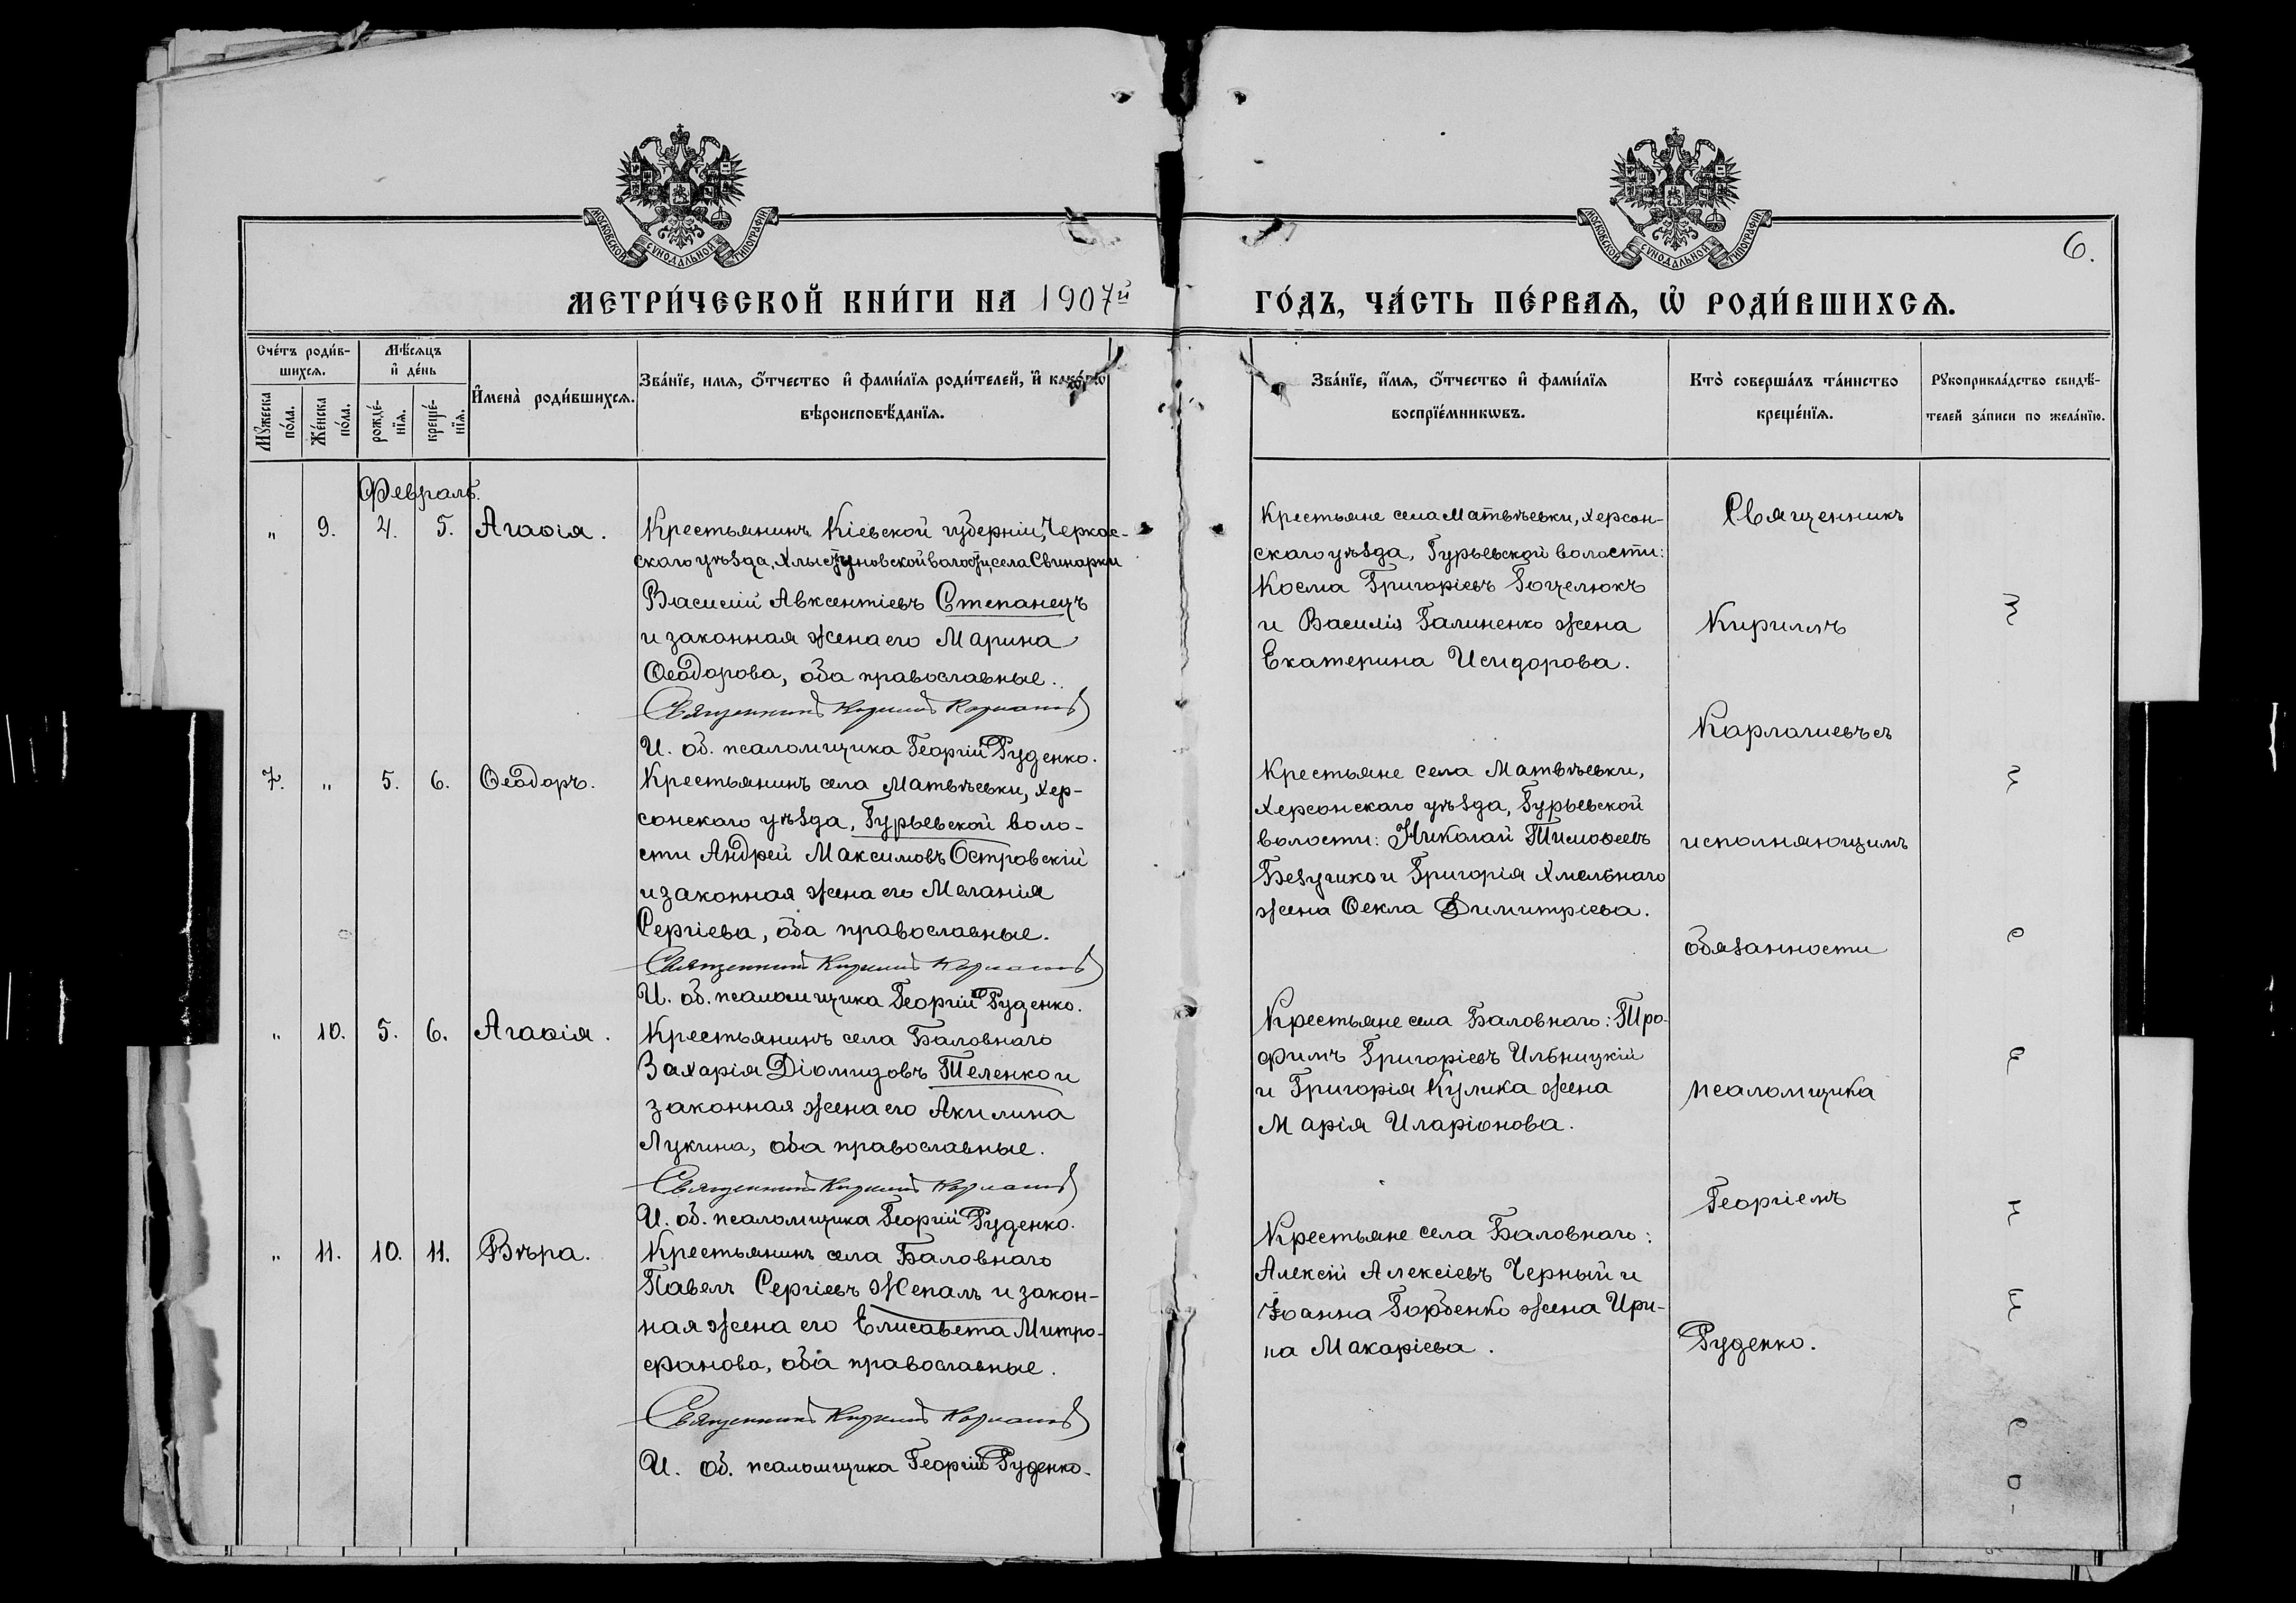 МОСКОВСКОЙ СѴНОДАЛЬНОЙ ТИПОГРАФІИ
МОСКОВСКОЙ СѴНОДАЛЬНОЙ ТИПОГРАФІИ
6.
МЕТРИ́ЧЕСКОЙ КНИ́ГИ НА 1907й
ГО́ДЪ, ЧА́СТЬ ПЕ́РВАѦ, Ѡ҆ РОДИ́ВШИХСѦ.
Сче́тъ роди́в-
шихсѧ.
Мѣ́сѧцъ
и҆ де́нь
Мꙋ́жеска по́ла.
Же́нска по́ла.
рожде́-нїѧ.
креще́-нїѧ.
И҆мена̀ роди́вшихсѧ.
Зва́нїе, имѧ, ѻ҆́тчество и҆ фами́лїѧ роди́телей, и҆ како́гѡ
вѣроисповѣ́данїѧ.
Зва́нїе, и҆́мѧ, ѻ҆́тчество и҆ фами́лїѧ
воспрїе́мникѡвъ.
Кто̀ соверша́лъ та́инство
креще́нїѧ.
Рꙋкоприкла́дство свидѣ́-
телей за́писи по жела́нїю.
Февраль.
" 9. 4. 5. Агаѳія.
Крестьянинъ Кіевской губерніи, Черкас-
скаго уѣзда, Хлыстуновской волости, села Свинарки
Василій Авксентіевъ Степанецъ
и законная жена его Марина
Ѳеодорова, оба православные.
Священникъ Кирилъ
И. об. псаломщика Георгій Руденко.
Крестьяне села Матвѣевки, Херсон-
скаго уѣзда, Гурьевской волости:
Косма Григоріевъ Гоцелюкъ
и Василія Галиненко жена
Екатерина Исидорова.
7. " 5. 6. Ѳеодоръ.
Крестьянинъ села Матвѣевки, Хер-
сонскаго уѣзда, Гурьевской воло-
сти Андрей Максимовъ Островскій
и законная жена его Меланія
Сергіева, оба православные.
Священникъ Кирилъ
И. об. псаломщика Георгій Руденко.
Крестьяне села Матвѣевки,
Херсонскаго уѣзда, Гурьевской
волости: Николай Тимоѳеевъ
и Григорія Хмельнаго
жена Ѳекла Димитріева.
" 10. 5. 6. Агаѳія.
Крестьянинъ села Баловнаго
Захарія Діомидовъ Теленко и
законная жена его Акилина
Лукина, оба православные.
Священникъ Кирилъ
И. об. псаломщика Георгій Руденко.
Крестьяне села Баловнаго: Тро-
фимъ Григоріевъ Ильницкій
и Григорія Кулика жена
Марія Иларіонова.
" 11. 10. 11. Вѣра.
Крестьянинъ села Баловнаго
Павелъ Сергіевъ Жепалъ и закон-
ная жена его Елисавета Митро-
фанова, оба православные.
Священникъ Кирилъ
И. об. псаломщика Георгій Руденко.
Крестьяне села Баловнаго:
Алексій Алексіевъ Черный и
Іоанна Горбенко жена Ири-
на Макаріева.
Священникъ
Кириллъ
исполняющимъ
обязанности
псаломщика
Георгіемъ
Руденко.